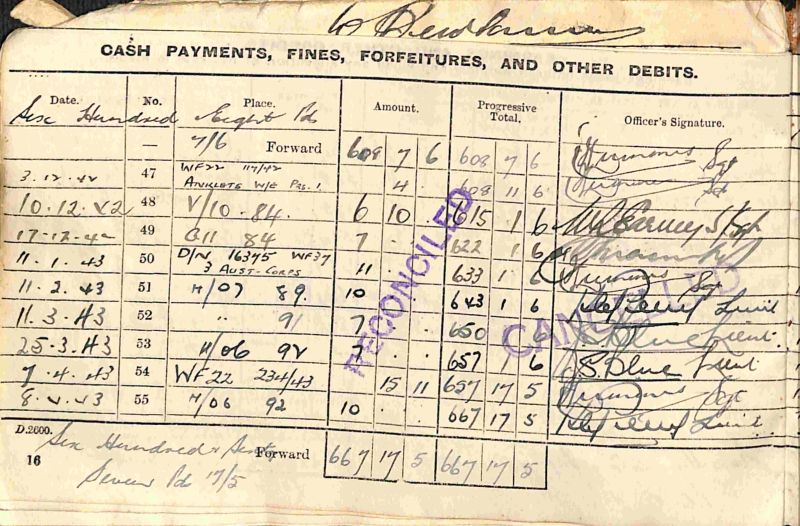 CASH PAYMENTS, FINES, FORFEITURES, AND OTHER DEBITS.
Date. No. Place. Amount. Progressive Total. Officer's Signature.
Six Hundred Eight Pd
— 7/6 Forward 608 7 6 608 7 6 Sgt
3.12.42 47 WF22 117/42 ANKLETS W/E PRS. 1 4 . 608 11 6
10.12.42 48 V/10 - 84. 6 10 . 615 1 6
17-12-42 49 84 7 . . 622 1 6
11.1.43 50 D/N 16375 WF37 3 AUST-CORPS 11 . . 633 1 6 Sgt
11.2.43 51 H/07 89. 10 . . 643 1 6 Lieut
11.3.43 52 " 91 7 . . 650 1 6 S. Blue Lieut
25.3.43 53 H/06 92 7 . . 657 1 6 S. Blue Lieut
7.4.43 54 WF22 234/43 15 11 657 17 5 Sgt
8.4.43 55 H/06 92 10 . . 667 17 5 Lieut
D.2600.
Six Hundred & Sixty Forward 667 17 5 667 17 5
16 Seven Pd 17/5
RECONCILED